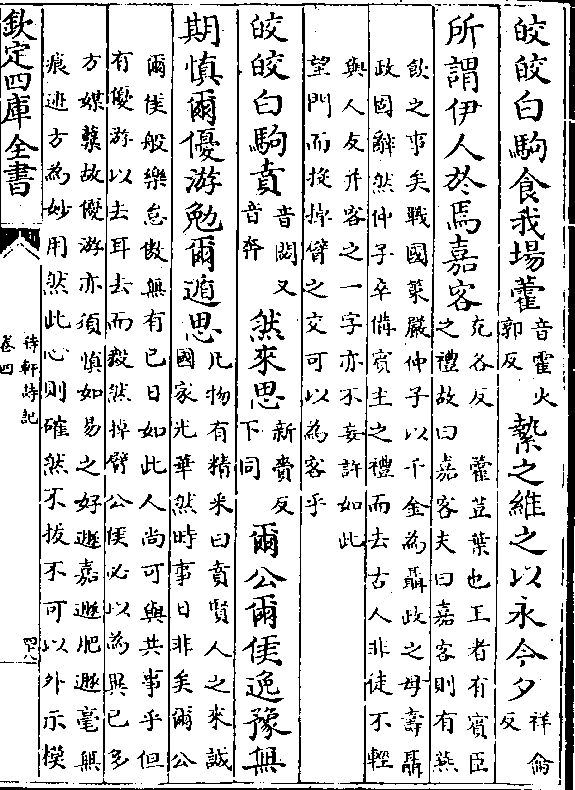 皎皎白駒食我場藿音霍火郭反縶之維之以永今夕祥龠反
所謂伊人於焉嘉客克各反藿荳葉也王者有賓臣之禮故曰嘉客夫曰嘉客則有燕
飲之事矣戰國策嚴仲子以千金為聶政之母壽聶
政固辭然仲子卒備賓主之禮而去古人非徒不輕
與人友并客之一字亦不妄許如此
望門而投掉臂之交可以為客乎
皎皎白駒賁音閟又音奔然來思新賫反下同爾公爾侯逸豫無
期慎爾優游勉爾遁思凡物有精采曰賁賢人之來誠國家光華然時事日非矣爾公
爾侯般樂怠傲無有已日如此人尚可與共事乎但
有優游以去耳去而毅然掉臂公侯必以為異已多
方媒櫱故優游亦須慎如易之好遯嘉遯肥遯毫無
痕迹方為妙用然此心則確然不拔不可以外示模
欽定四庫全書
待軒詩記
卷四
四八